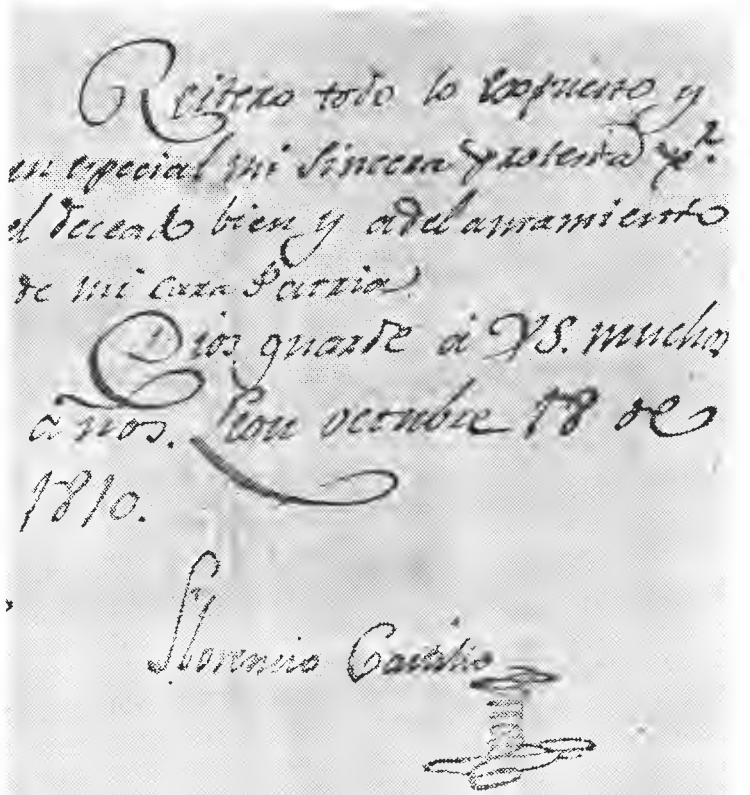 Reitero todo lo expuesto y
en especial mi sincera protesta pr.
el deceado bien y adelantamiento
de mi cara Patria.
Dios guarde á VS. muchos
años. Leon octubre 18 de
1810.
Florencio Castillo